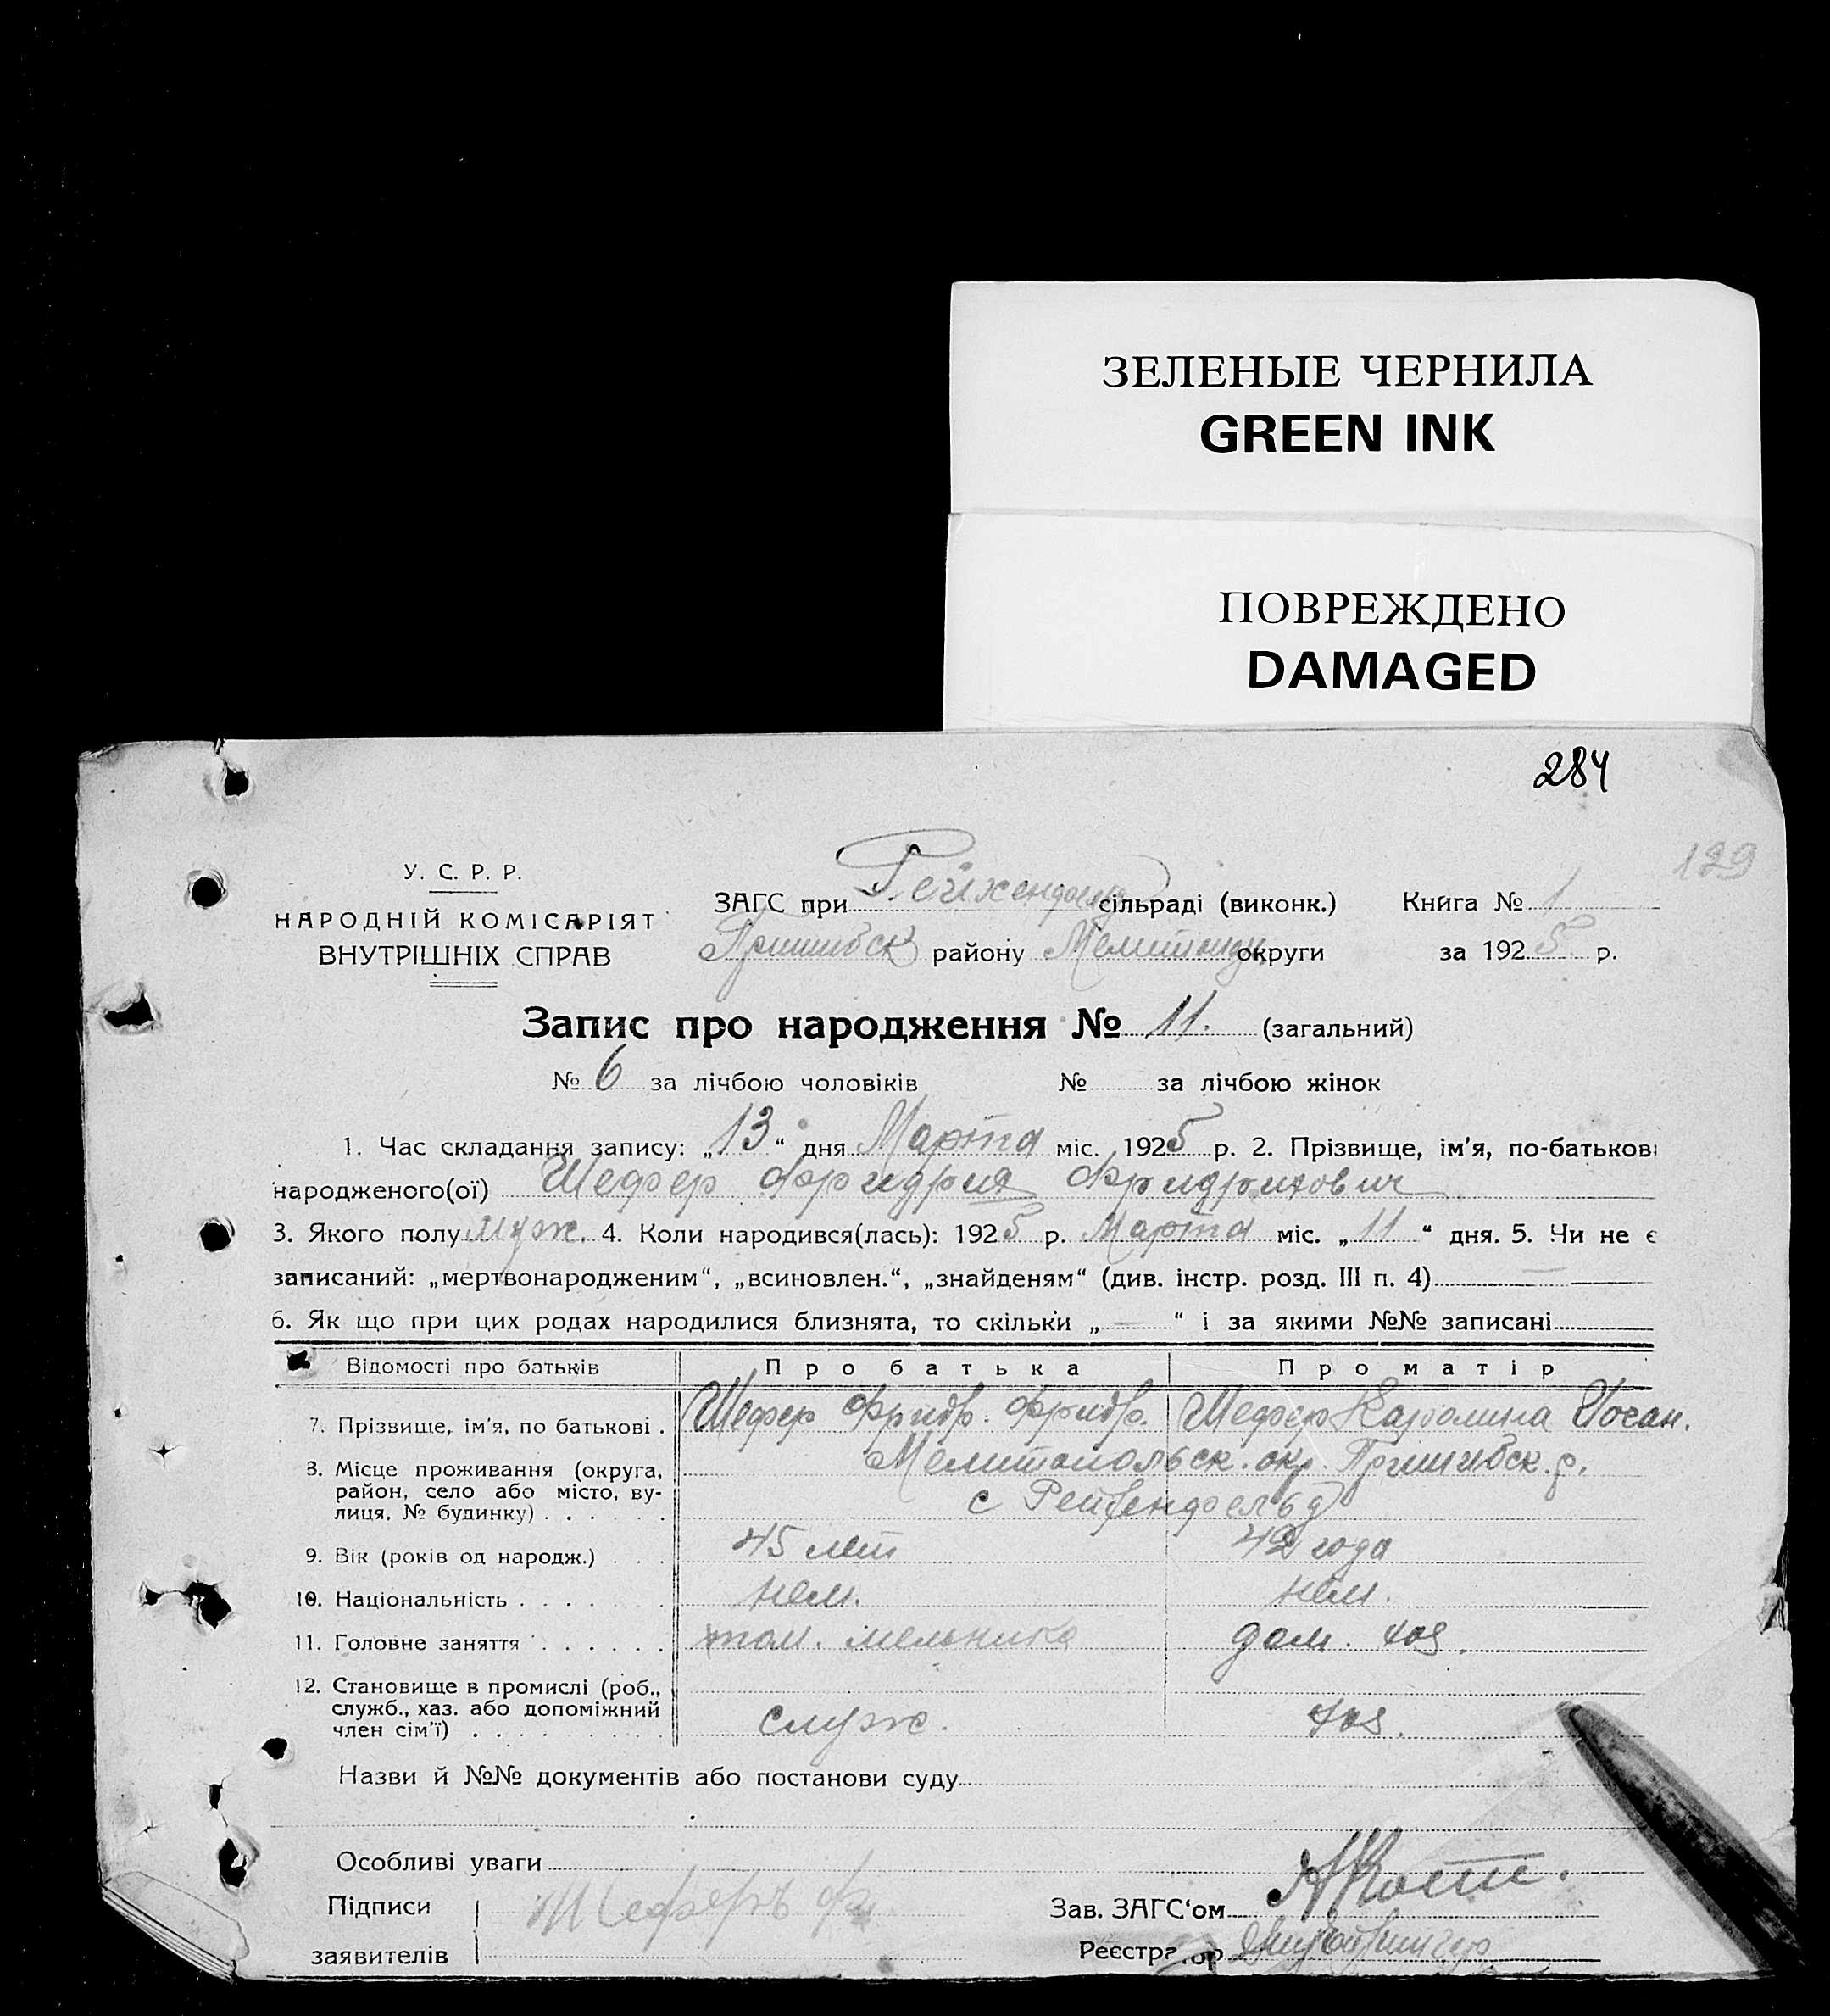 ЗЕЛЕНЫЕ ЧЕРНИЛА
GREEN INK
ПОВРЕЖДЕНО
DAMAGED
284
129
У. С. Р. Р.
НАРОДНІЙ КОМІСАРІЯТ
ВНУТРІШНІХ СПРАВ
ЗАГС при Рейхенфельд сільраді (виконк.) Книга № 1
Пришибск району Мелитоп округи за 1925 р.
Запис про народження № 11. (загальний)
№ 6 за лічбою чоловіків № за лічбою жінок
1. Час складання запису: „13“ дня Марта міс. 1925 р. 2. Прізвище, ім'я, по-батькові
народженого(ої) Шефер Фридрих Фридрихович
3. Якого полу муж. 4. Коли народився(лась): 1925 р. Марта міс. „11“ дня. 5. Чи не є
записаний: „мертвонародженим“, „всиновлен.“, „знайденям“ (див. інстр. розд. III п. 4) —
6. Як що при цих родах народилися близнята, то скільки „—“ і за якими №№ записані
Відомості про батьків Про батька Про матір
7. Прізвище, ім'я, по батькові . Шефер Фридр. Фридр. Шефер Каролина Иоган.
8. Місце проживання (округа, Мелитопольск. окр. Пришибск. р.
район, село або місто, ву-
лиця, № будинку) . . . . . . с Рейхенфельд
9. Вік (років од народж.) . . . 45 лет 42 года
10. Національність . . . . . . нем. нем.
11. Головне заняття . . . . . . пом. мельника дом. хоз.
12. Становище в промислі (роб.,
служб., хаз. або допоміжний
член сім'ї) . . . . . . . . . служ. хоз.
Назви й №№ документів або постанови суду
Особливі уваги
Підписи Шеферъ Фр
заявителів
Зав. ЗАГС'ом
Реєстратор